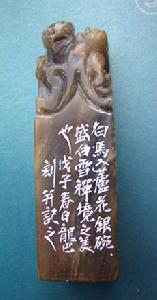 白馬入蘆花銀碗
盛白雪禪境之美
也戊子春日龍巴
刻并訣之